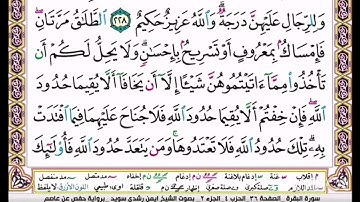 وَلِلرِّجَالِ عَلَيْهِنَّ دَرَجَةٌ ۗ وَٱللَّهُ عَزِيزٌ حَكِيمٌ ٢٢٨ ٱلطَّلَٰقُ مَرَّتَانِ ۖ
فَإِمْسَاكٌۢ بِمَعْرُوفٍ أَوْ تَسْرِيحٌۢ بِإِحْسَٰنٍ ۗ وَلَا يَحِلُّ لَكُمْ أَن
تَأْخُذُوا۟ مِمَّآ ءَاتَيْتُمُوهُنَّ شَيْـًٔا إِلَّآ أَن يَخَافَآ أَلَّا يُقِيمَا حُدُودَ
ٱللَّهِ ۖ فَإِنْ خِفْتُمْ أَلَّا يُقِيمَا حُدُودَ ٱللَّهِ فَلَا جُنَاحَ عَلَيْهِمَا فِيمَا ٱفْتَدَتْ
بِهِۦ ۗ تِلْكَ حُدُودُ ٱللَّهِ فَلَا تَعْتَدُوهَا ۚ وَمَن يَتَعَدَّ حُدُودَ ٱللَّهِ فَأُو۟لَٰٓئِكَ
سورة البقرة - الصفحة ٣٦ - الحزب ٤ - الجزء ٢ - بصوت الشيخ أيمن رشدي سويد - رواية حفص عن عاصم